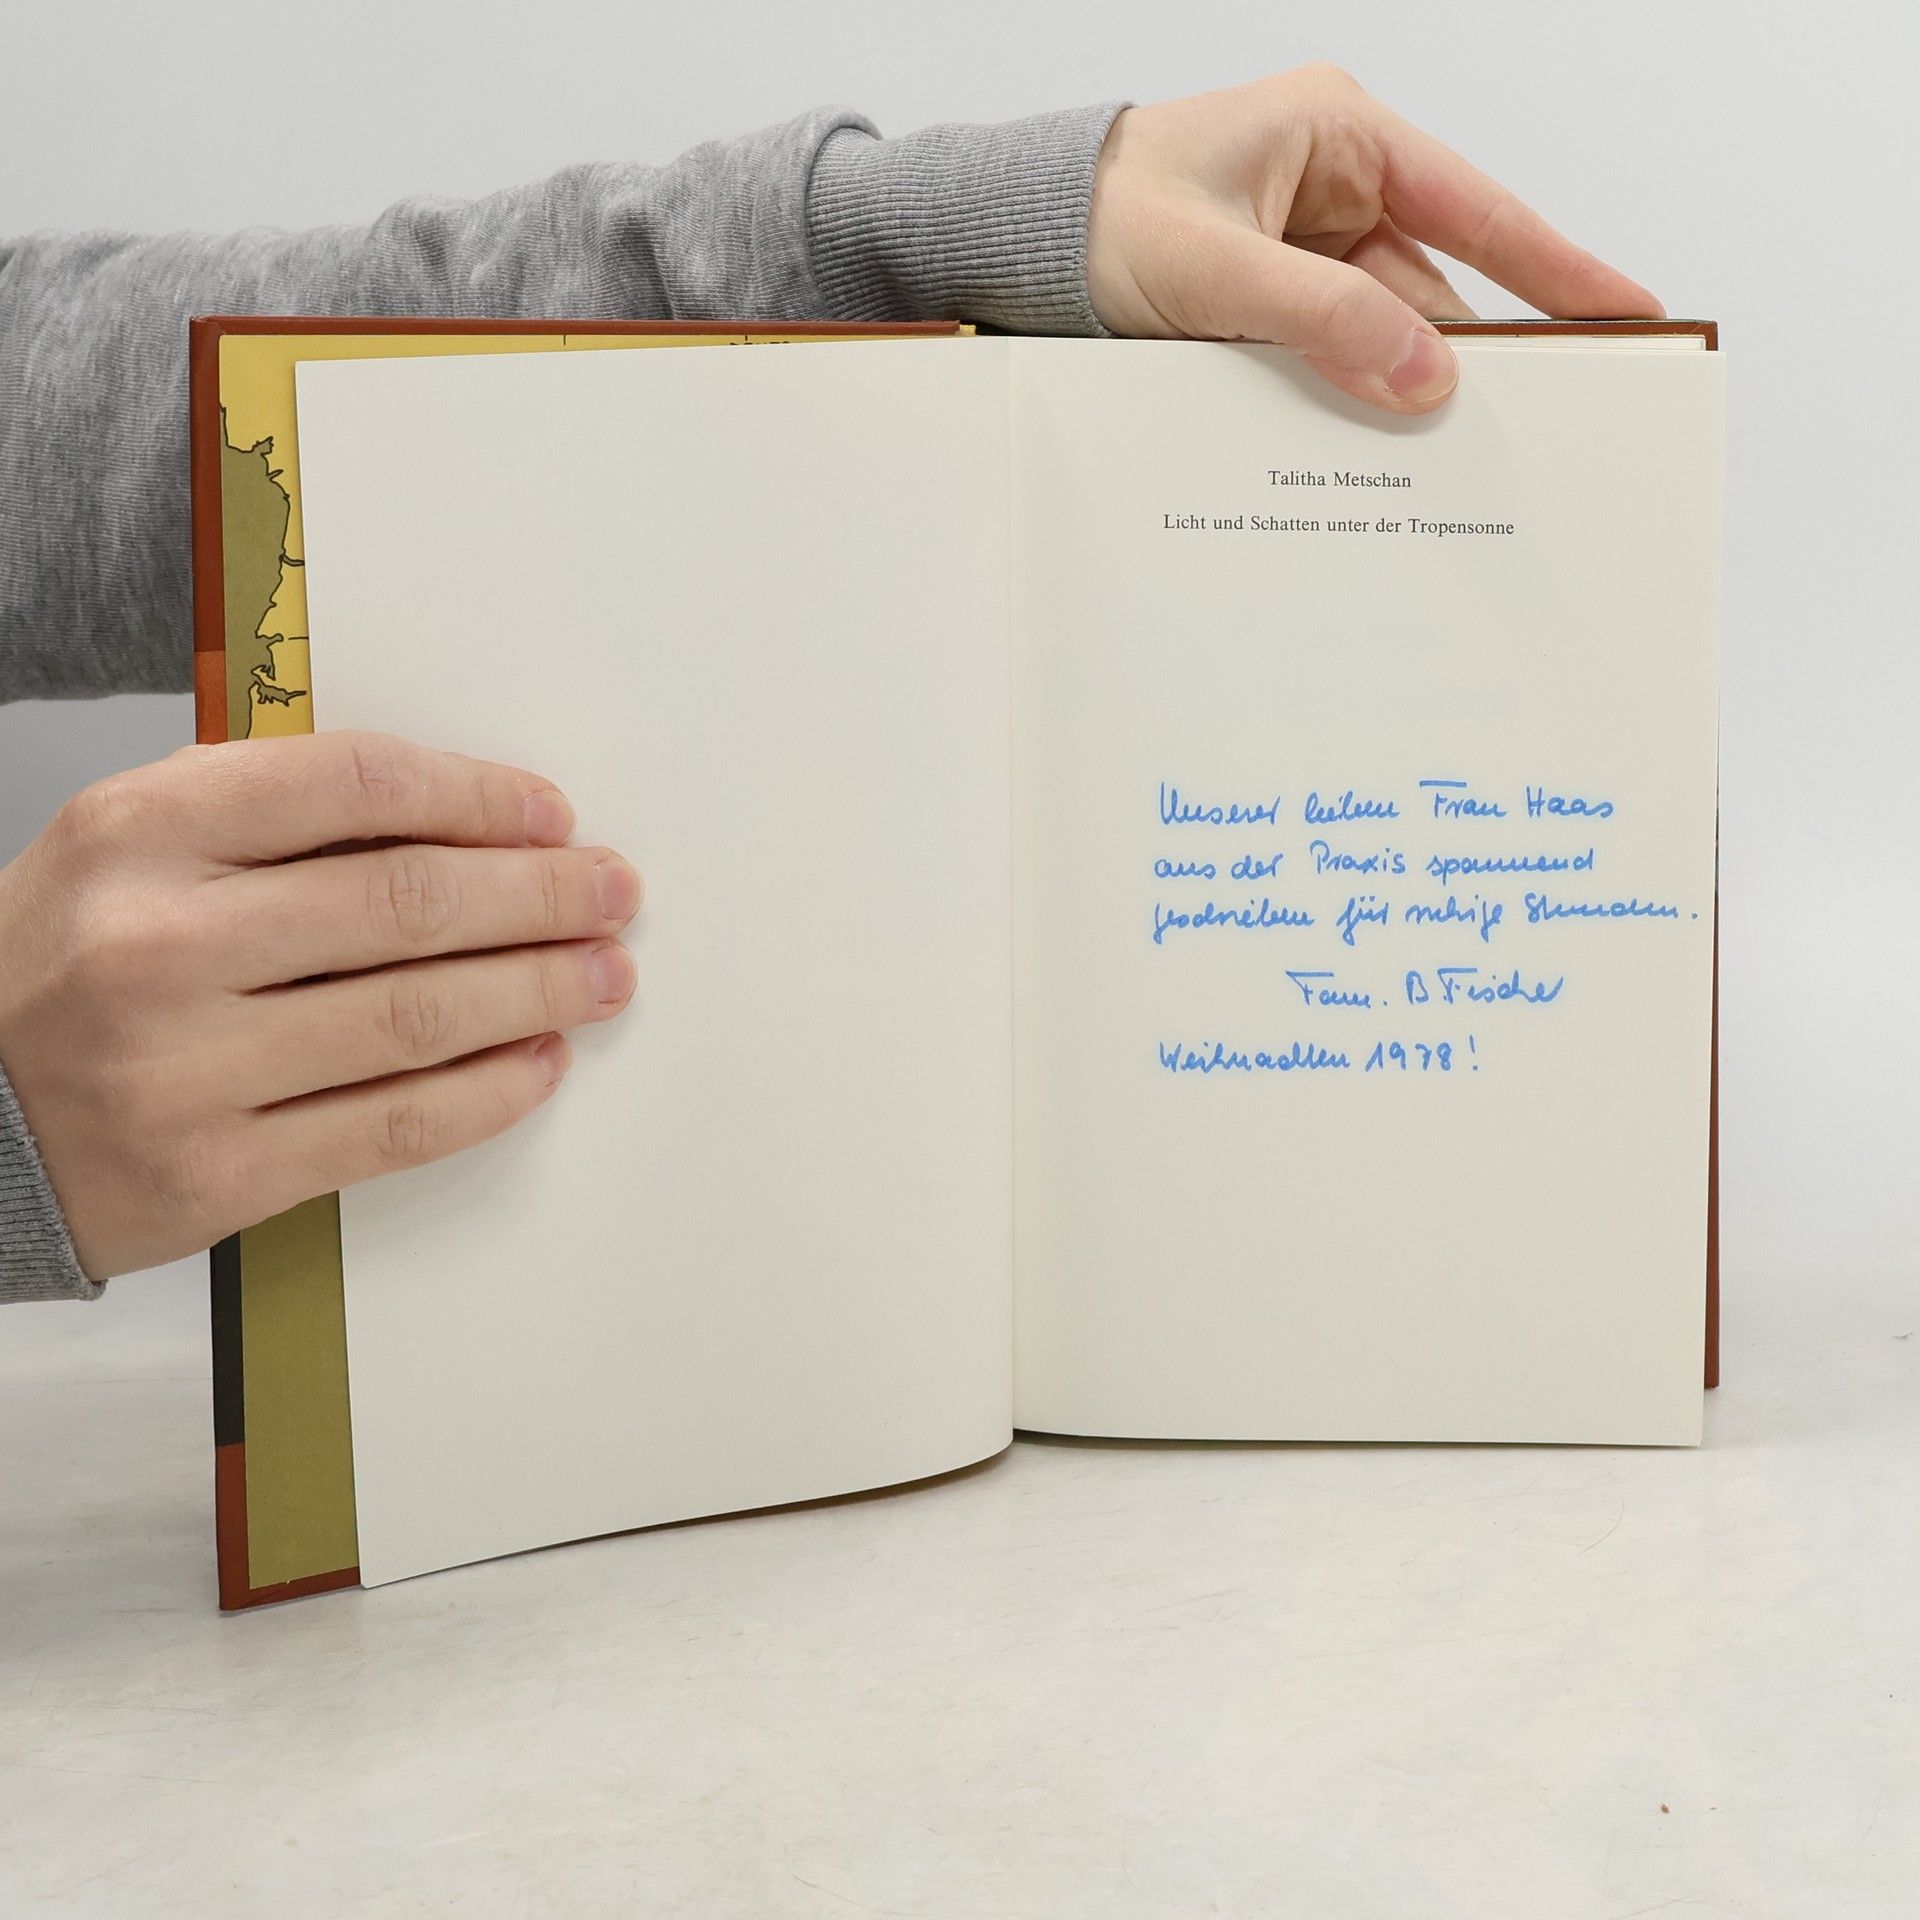 Talitha Metschan
Licht und Schatten unter der Tropensonne
Unserer lieben Frau Haas
aus der Praxis spannend
geschrieben für ruhige Stunden.
Fam. B Fischer
Weihnachten 1978!